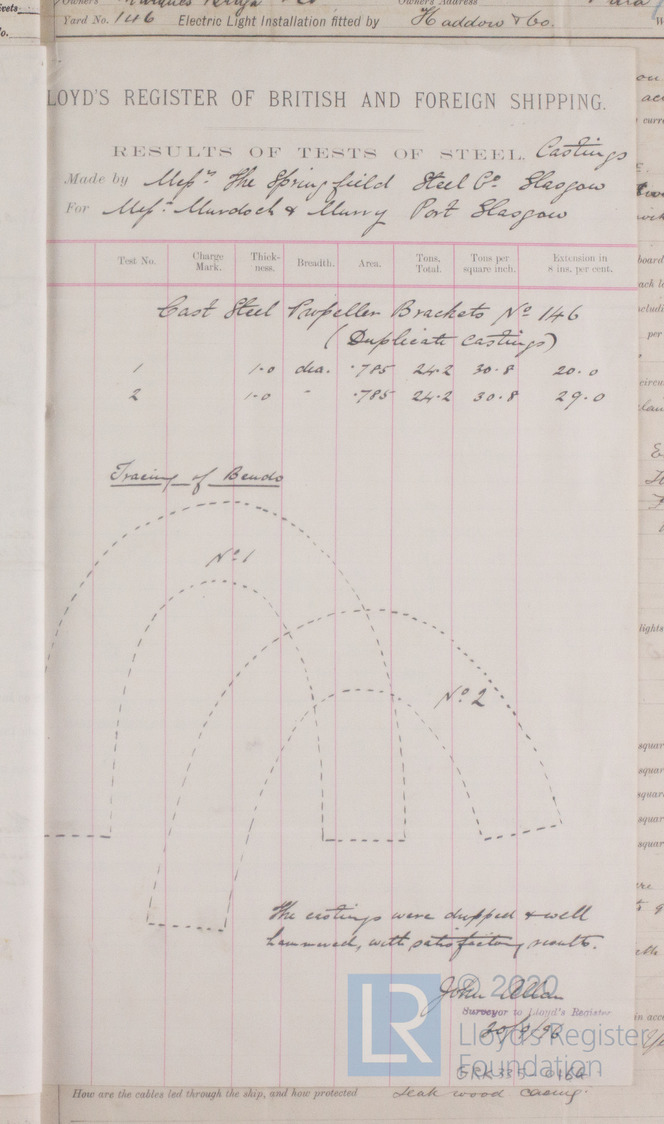 Owners
Owners Address
Yard No. 146 Electric Light Installation fitted by Haddow & Co.
LOYD'S REGISTER OF BRITISH AND FOREIGN SHIPPING.
RESULTS OF TESTS OF STEEL. Castings
Made by Messrs The Springfield Steel Co. Glasgow
For Messrs Murdoch & Murry Port Glasgow
Test No. Charge Mark. Thickness. Breadth. Area. Tons, Total. Tons per square inch. Extension in 8 ins. per cent.
Cast Steel Propeller Brackets No 146
(Duplicate castings)
1 1.0 dia. .785 24.2 30.8 20.0
2 1.0 " .785 24.2 30.8 29.0
Tracing of Bends
No 1
No 2
The castings were dropped & well
hammered, with satisfactory results.
John Allan
Surveyor to Lloyd's Register
© 2020
LR
Lloyd's Register
Foundation
How are the cables led through the ship, and how protected teak wood casing.